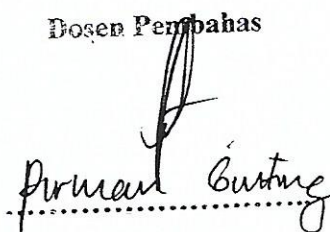 Dosen Pembahas
Pirman Ginting